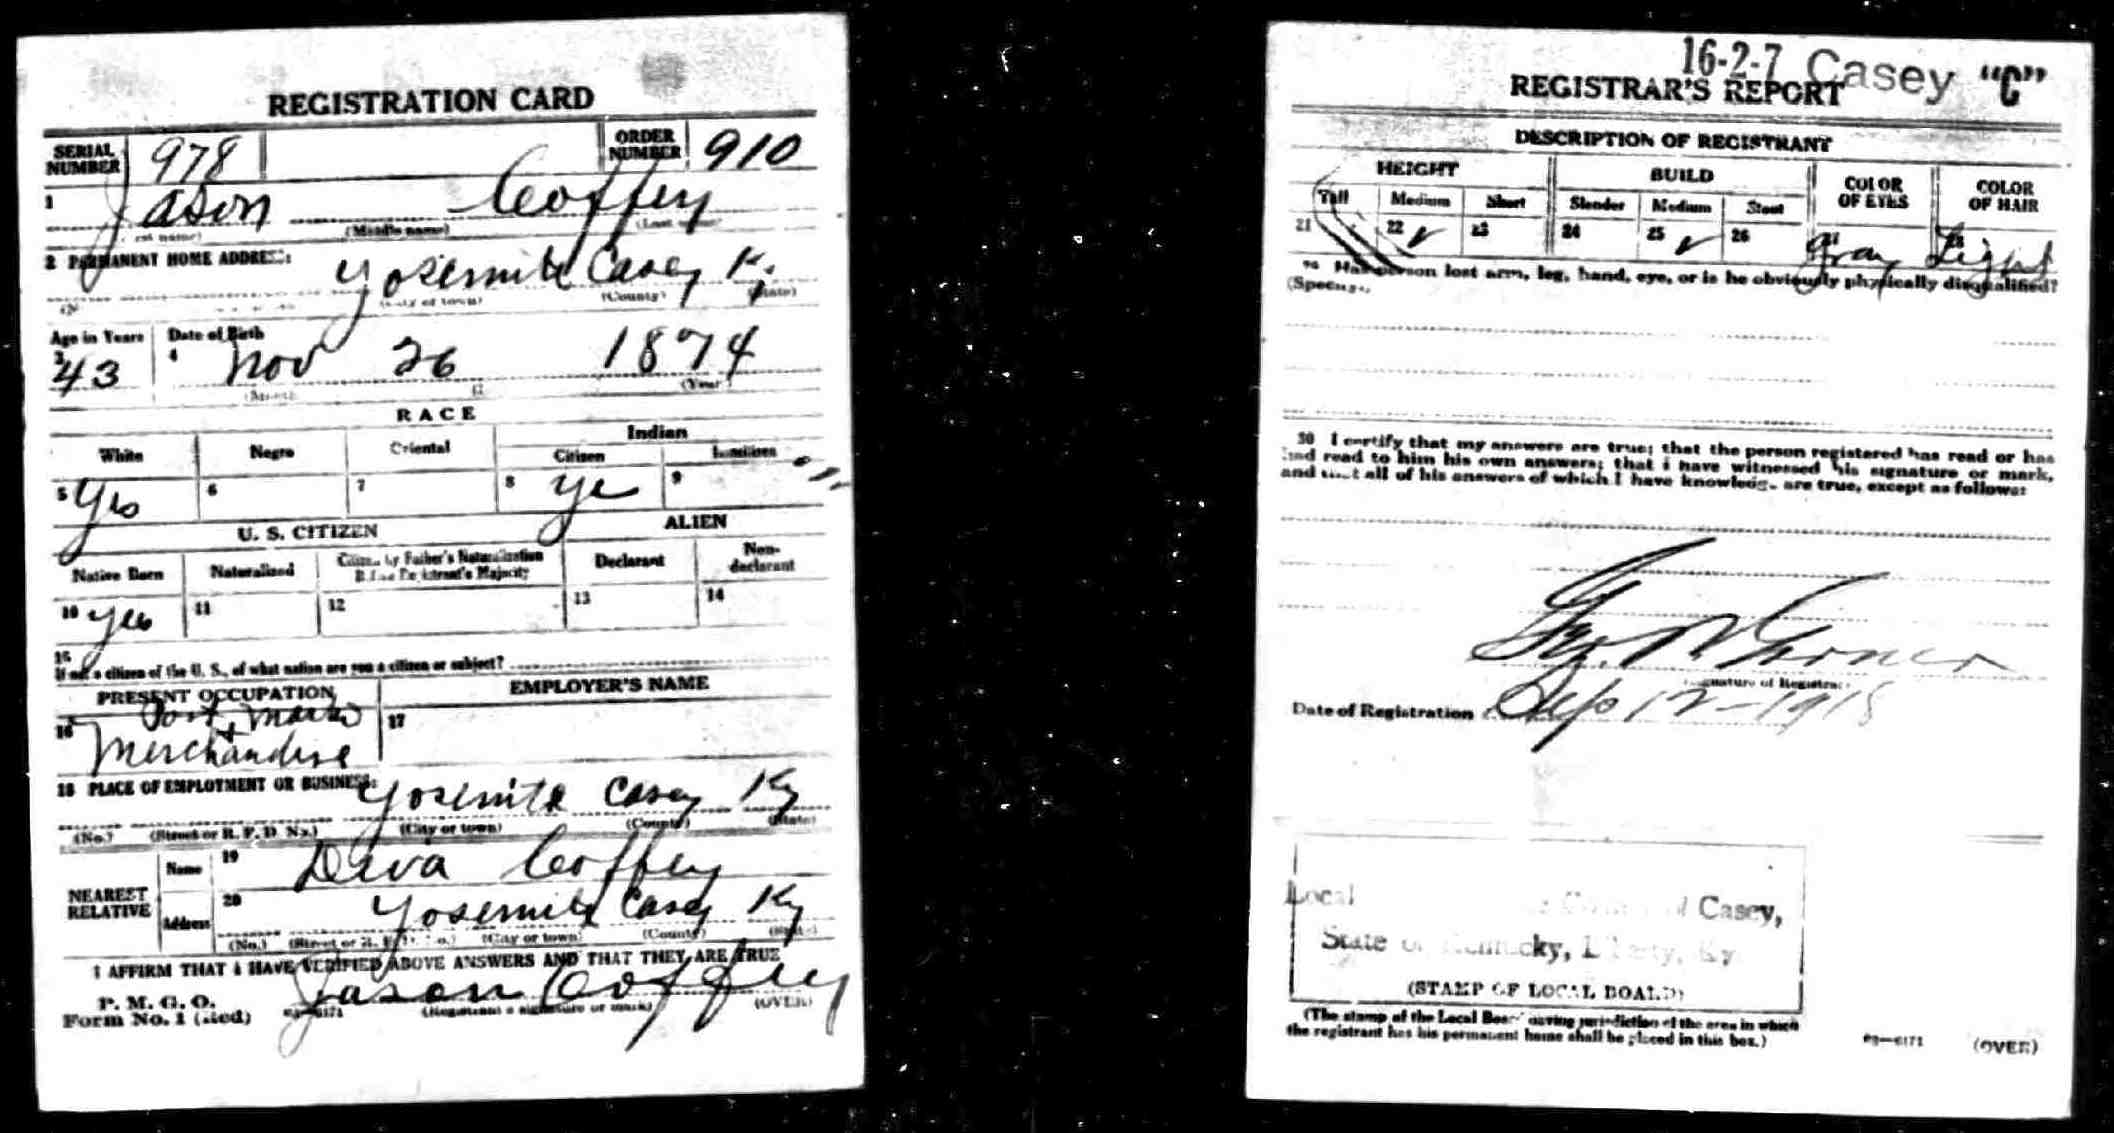 REGISTRATION CARD
SERIAL NUMBER 978 ORDER NUMBER 910
1 Jason Coffey
(Middle name)
2 PERMANENT HOME ADDRESS: Yosemite Casey Ky
(City or town) (County) (State)
Age in Years Date of Birth
3 43 4 Nov 26 1874
(Month) (Year)
RACE
White Negro Oriental Indian
Citizen
5 Yes 6 7 8 Ye 9
U. S. CITIZEN ALIEN
Native Born Naturalized Citizen by Father's Naturalization Before Registrant's Majority Declarant Non-declarant
10 Yes 11 12 13 14
15
If not a citizen of the U. S., of what nation are you a citizen or subject?
PRESENT OCCUPATION EMPLOYER'S NAME
16 Post 17
Merchandise
18 PLACE OF EMPLOYMENT OR BUSINESS: Yosemite Casey Ky
(No.) (Street or R. F. D. No.) (City or town) (County) (State)
NEAREST RELATIVE Name 19 Coffey
Address 20 Yosemite Casey Ky
(No.) (Street or R. F. D. No.) (City or town) (County) (State)
I AFFIRM THAT I HAVE VERIFIED ABOVE ANSWERS AND THAT THEY ARE TRUE
P. M. G. O.
Form No. 1 (Red) Jason Coffey
(Registrant's signature or mark) (OVER)
16-2-7 Casey "C"
REGISTRAR'S REPORT
DESCRIPTION OF REGISTRANT
HEIGHT BUILD COLOR OF EYES COLOR OF HAIR
Tall Medium Short Slender Medium Stout
21 22 ✓ 23 24 25 ✓ 26 Gray Light
Has person lost arm, leg, hand, eye, or is he obviously physically disqualified?
(Specify.)
30 I certify that my answers are true; that the person registered has read or has
had read to him his own answers; that I have witnessed his signature or mark,
and that all of his answers of which I have knowledge are true, except as follows:
(Signature of Registrar)
Date of Registration Sep 12-1918
Local Casey,
State of Kentucky, Liberty, Ky.
(STAMP OF LOCAL BOARD)
(The stamp of the Local Board having jurisdiction of the area in which
the registrant has his permanent home shall be placed in this box.)
03—6171 (OVER)